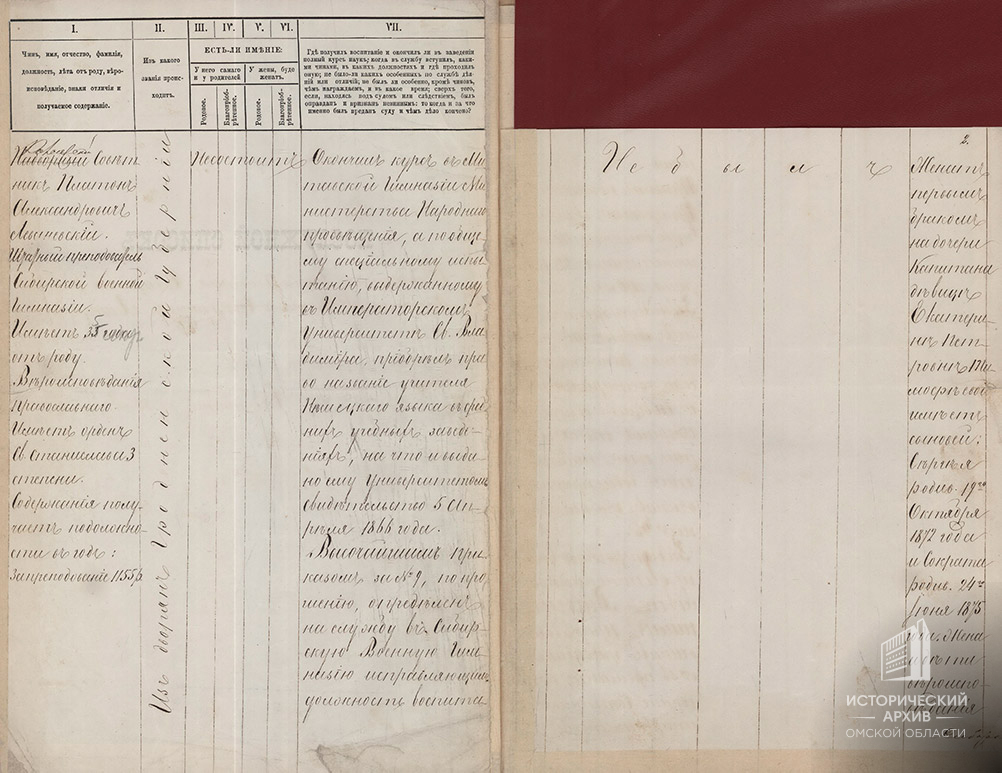 I.
Чинъ, имя, отчество, фамилія,
должность, лѣта отъ роду, вѣро-
исповѣданіе, знаки отличія и
получаемое содержаніе.
II.
Изъ какого
званія проис-
ходитъ.
III. IV. V. VI.
ЕСТЬ-ЛИ ИМѢНІЕ:
У него самаго
и у родителей
У жены, буде
женатъ.
Родовое.
Благопріоб-
рѣтенное.
Родовое.
Благопріоб-
рѣтенное.
VII.
Гдѣ получилъ воспитаніе и окончилъ ли въ заведеніи
полный курсъ наукъ; когда въ службу вступилъ, каки-
ми чинами, въ какихъ должностяхъ и гдѣ проходилъ
оную; не было-ли какихъ особенныхъ по службѣ дѣя-
ній или отличій; не былъ ли особенно, кромѣ чиновъ,
чѣмъ награждаемъ, и въ какое время; сверхъ того,
если, находясь подъ судомъ или слѣдствіемъ, былъ
оправданъ и признанъ невиннымъ: то когда и за что
именно былъ преданъ суду и чѣмъ дѣло кончено?
Надворный Совѣт
никъ Платонъ
Александровичъ
Штатный преподаватель
Сибирской военной
Гимназіи.
Имѣетъ 35
отъ роду.
Вѣроисповѣданія
Православнаго
Имѣетъ орденъ
Св. Станислава 3
степени.
Содержанія полу-
чаетъ по должно-
сти въ годъ:
За преподованіе 1155 р.
Изъ дворянъ Гродненской губерніи
Несостоитъ
Окончилъ курсъ въ Ми
тавской Гимназіи Ми
нистерства Народнаго
просвѣщенія, а по обще-
му спеціальному испы-
танію, выдержанному
въ Императорскомъ
Университетѣ Св. Вла
диміра, пріобрѣлъ пра
во на званіе учителя
Нѣмецкаго языка въ сред
нихъ учебныхъ заведе-
ніяхъ, на что и выда-
но ему Университетомъ
свидѣтельство 5 Ап-
рѣля 1866 года.
Высочайшимъ при
казомъ за № 9, по про
шенію, опредѣленъ
на службу въ Сибир-
скую Военную Гим-
назію исправляющимъ
должность воспита
Не былъ
2.
Женатъ
первымъ
бракомъ
на дочери
Капитана
дѣвицѣ
Екатери-
нѣ Пет
ровнѣ
имѣетъ
сыновей:
Сергѣя
родив. 19го
Октября
1872 года
и Сократа
родив. 24го
Іюня 1875
года. Жена
вѣроиспо-
вѣданія
ИСТОРИЧЕСКИЙ
АРХИВ
ОМСКОЙ ОБЛАСТИ